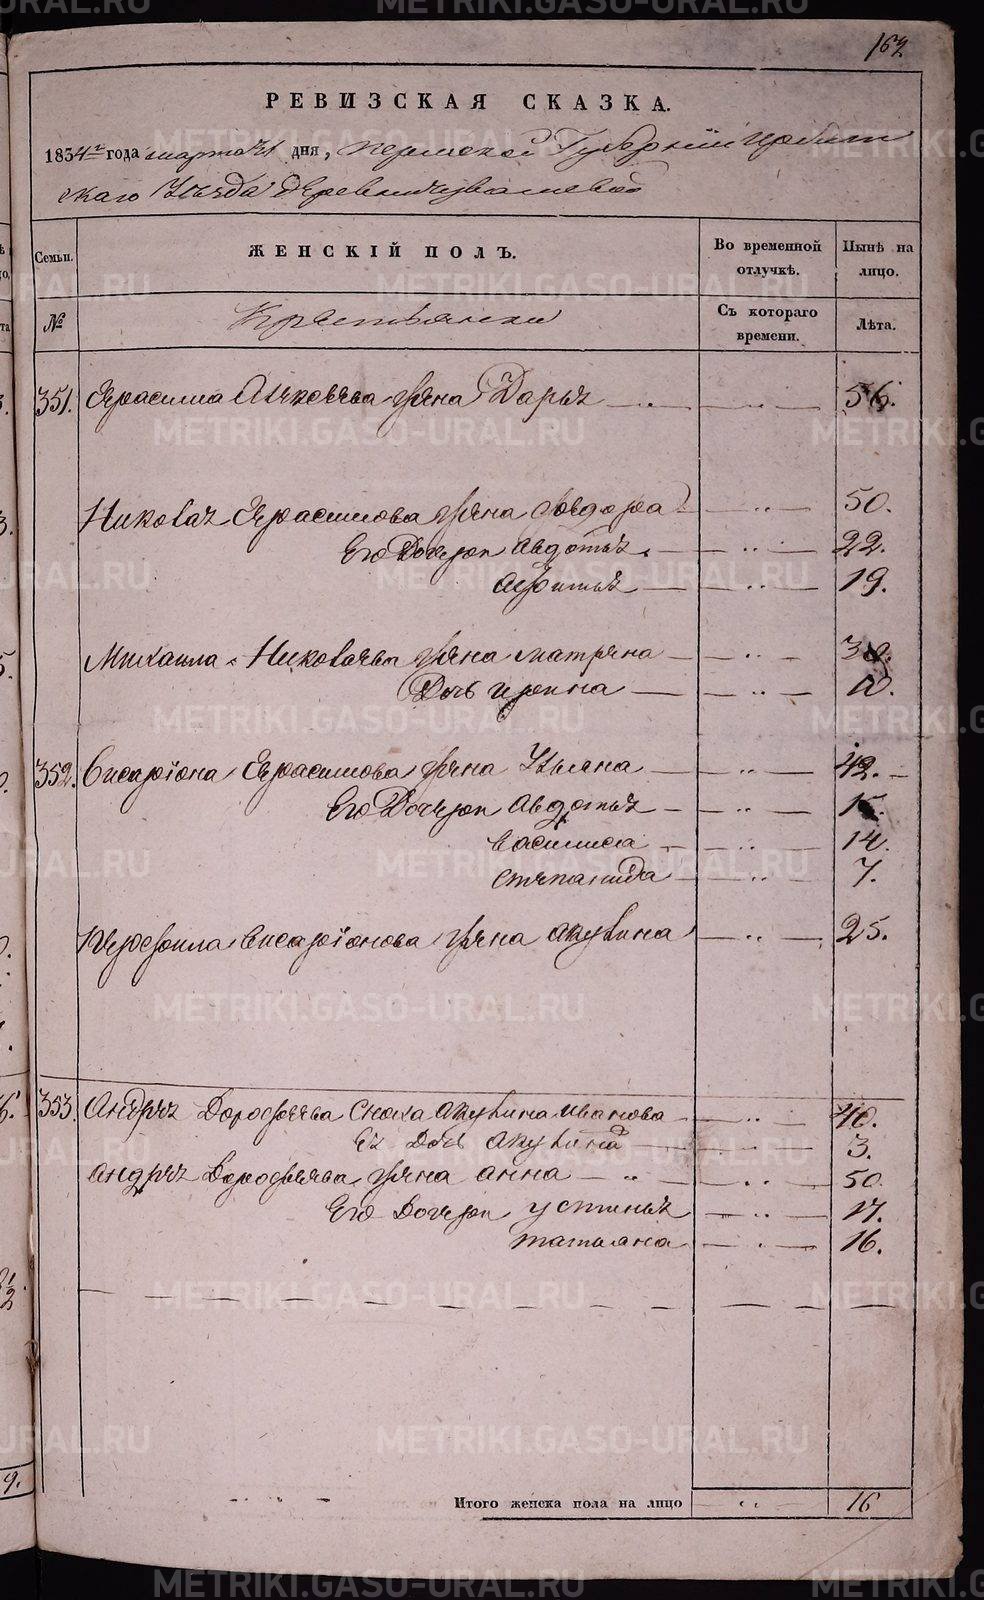 162
РЕВИЗСКАЯ СКАЗКА.
1834 года марта дня, Пермской Губернїи Ирбит
скаго Уѣзда деревни
Семьи. ЖЕНСКІЙ ПОЛЪ. Во временной отлучкѣ. Нынѣ на лицо.
№ Крестьянки Съ котораго времени. Лѣта.
351. Герасима жена Дарья 56.
Николая Герасимова жена Ѳедора 50.
Его Дочери Авдотья 22.
19.
Михаила Николаева жена Матрена
Дочь Ирина 10.
352. Висарїона Герасимова жена Ульяна 42.
Его Дочери Авдотья
Василиса 14.
Степанида 7.
Висарїонова жена Акулина 25.
353. Андрея Дорофеева Сноха Акулина Иванова 40.
Ея Дочь Акулина 3.
Андрея Дорофеева жена Анна 50
Его Дочери Устинья 17.
Татьяна 16.
Итого женска пола на лицо 16
METRIKI.GASO-URAL.RU